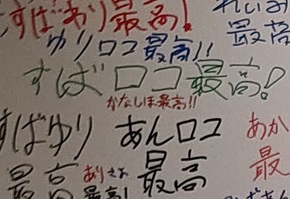 すばあり最高!
れいみ
最高
ゆりロコ最高!!
すばロコ最高!
かなしほ最高!!
すばゆり
最高
あんロコ
最高
あか
最
ありさお
最高!